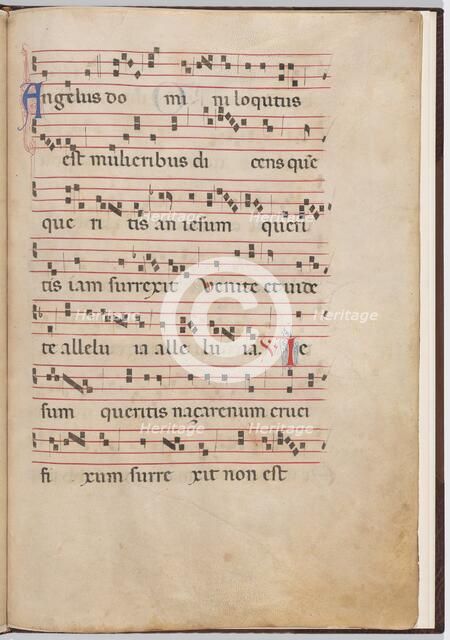 Angelus do mi ni loqutus
est mulieribus di cens que
que ri tis an iesum queri
tis iam surrexit Venite et uide
te allelu ia alle lu ia. Ie
sum queritis naçarenum cruci
fi xum surre xit non est
Heritage
Heritage
Heritage
Heritage
Heritage
Heritage
Heritage
Heritage